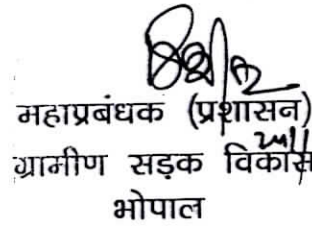 महाप्रबंधक (प्रशासन)
ग्रामीण सड़क विकास
भोपाल